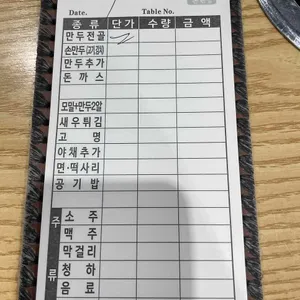 Date. Table No.
종 류 단가 수량 금 액
만두전골
손만두(고기,김치)
만두추가
돈 까 스
모밀+만두2알
새우튀김
고 명
야채추가
면·떡사리
공 기 밥
주 류
소 주
맥 주
막걸리
청 하
음 료